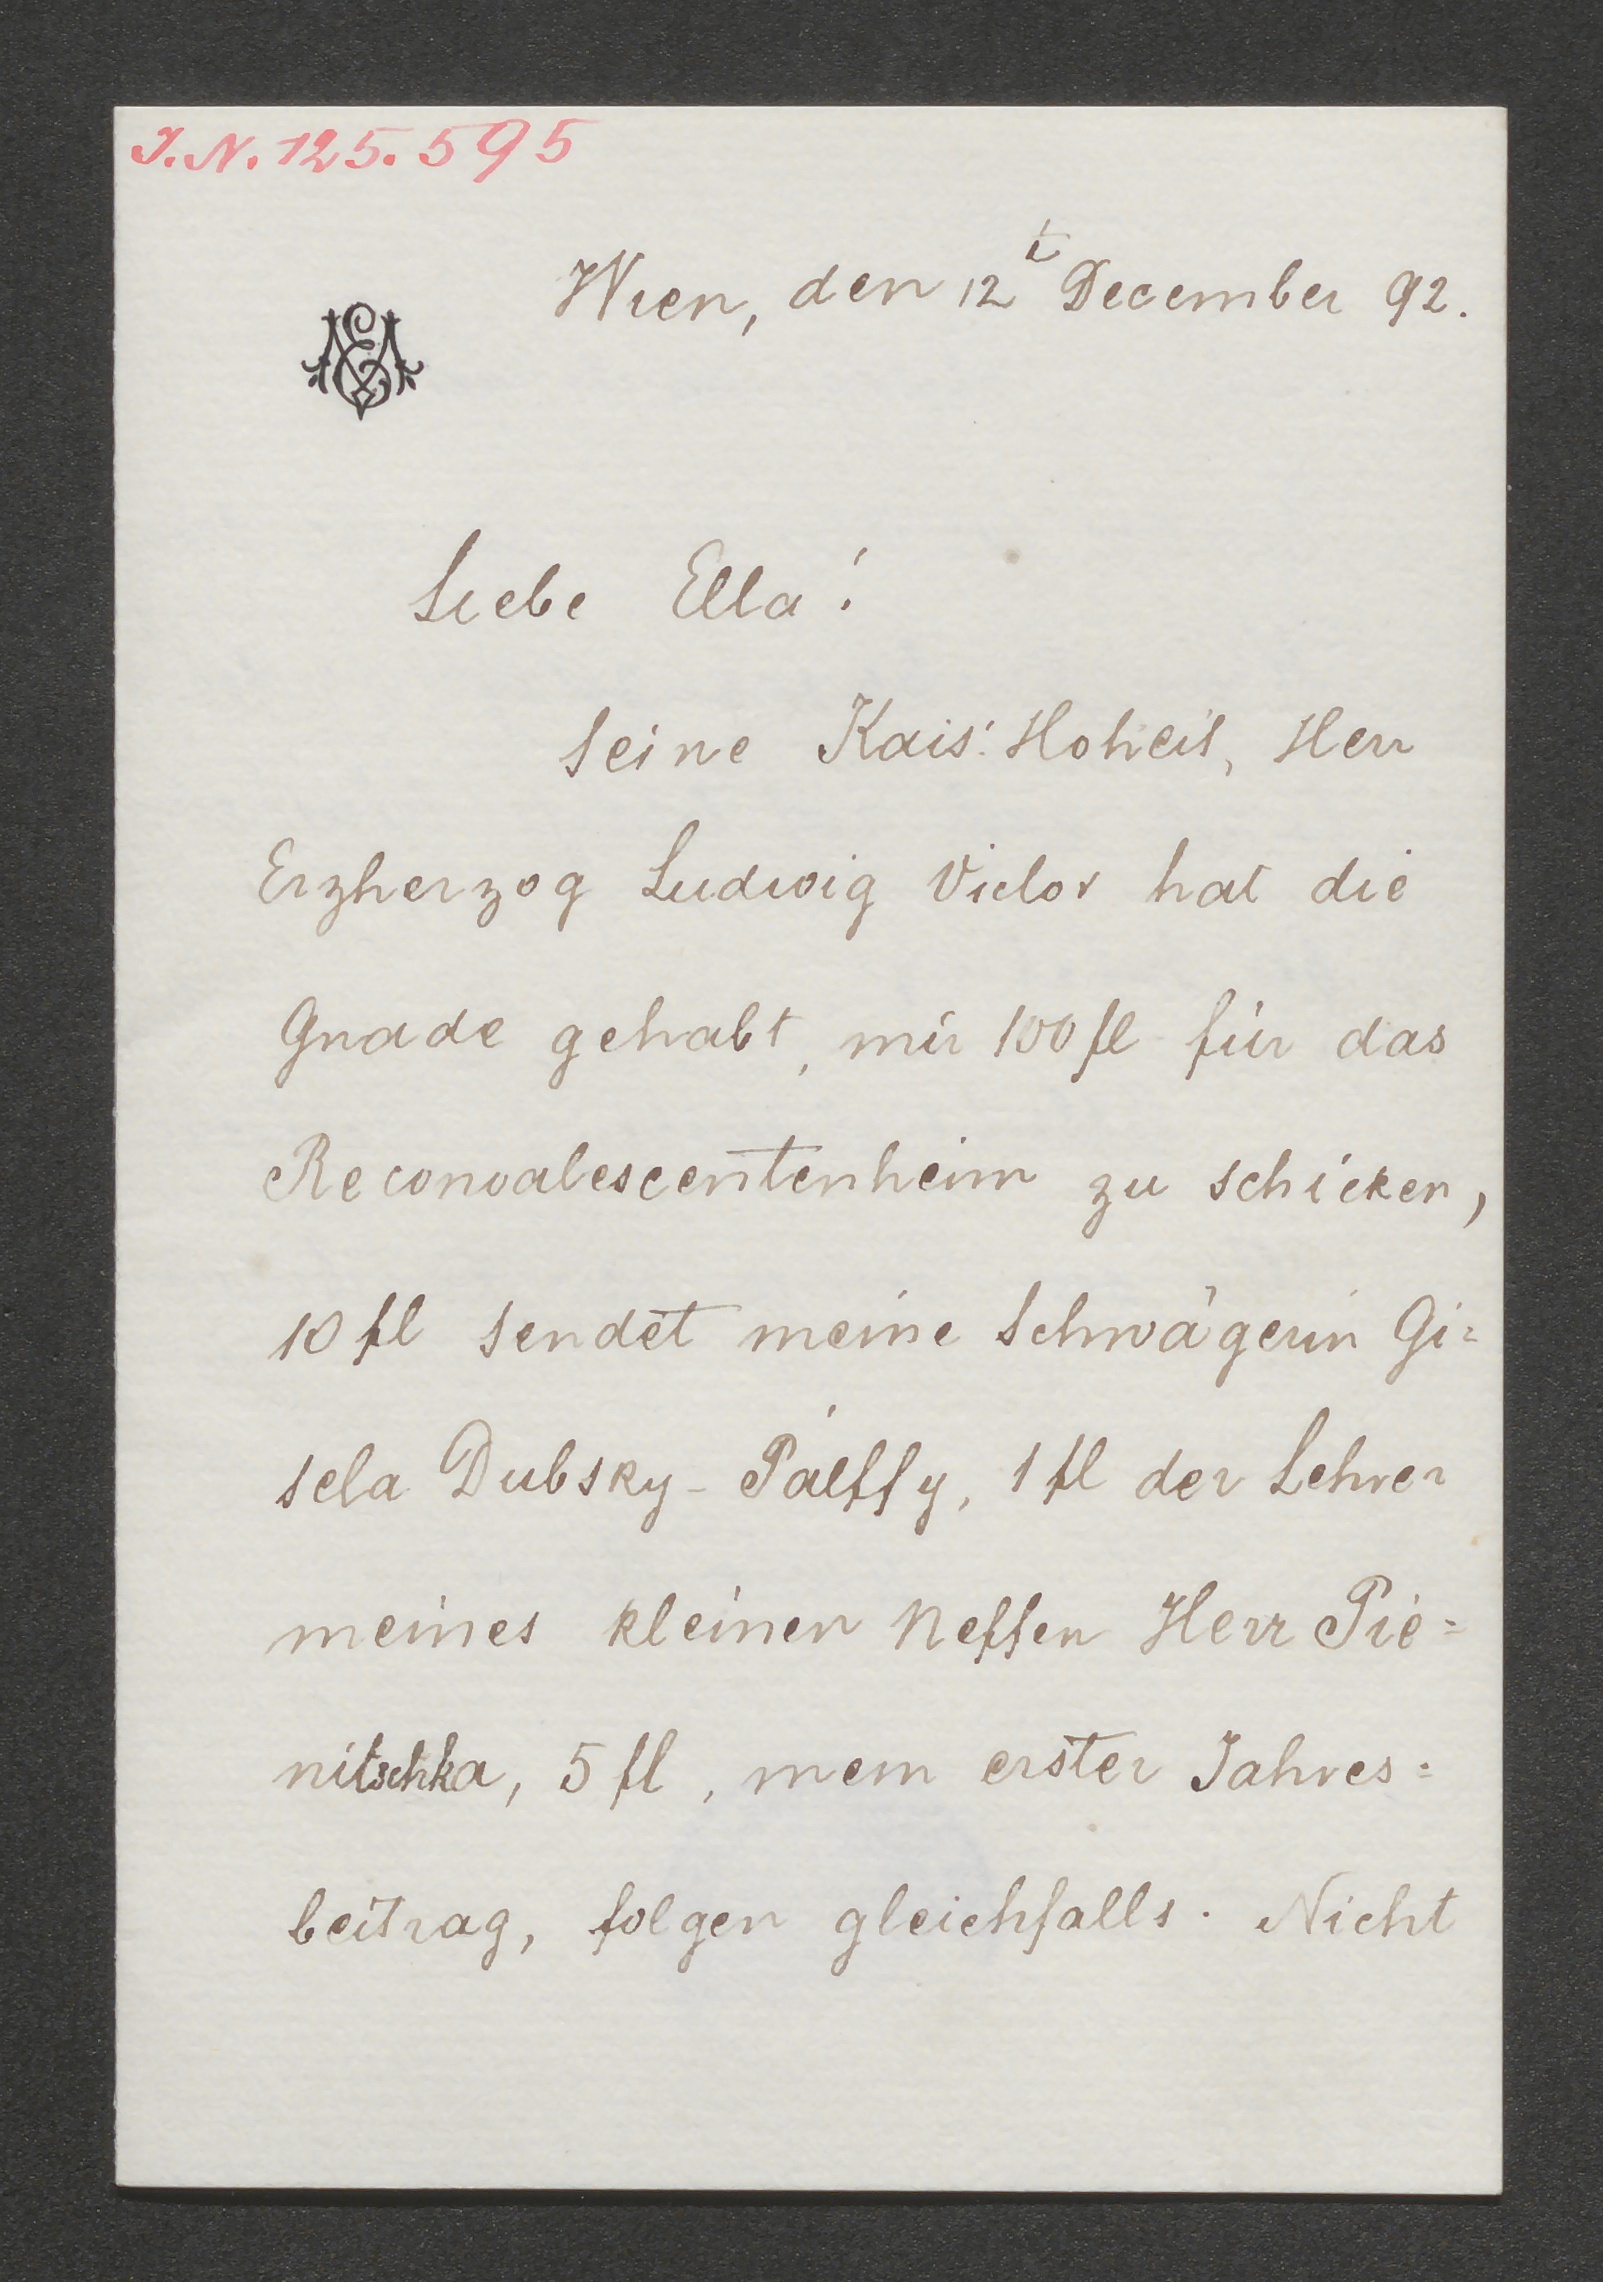 J.N. 125.595
Wien, den 12t December 92.
Liebe Ella!
Seine Kais: Hoheit, Herr
Erzherzog Ludwig Victor hat die
Gnade gehabt, mir 100 fl für das
Reconvalescentenheim zu schicken,
10 fl sendet meine Schwägerin Gi=
sela Dubsky-Pálffy, 1 fl der Lehrer
meines kleinen Neffen Herr Pie=
nitschka, 5 fl, mein erster Jahres=
beitrag, folgen gleichfalls. Nicht